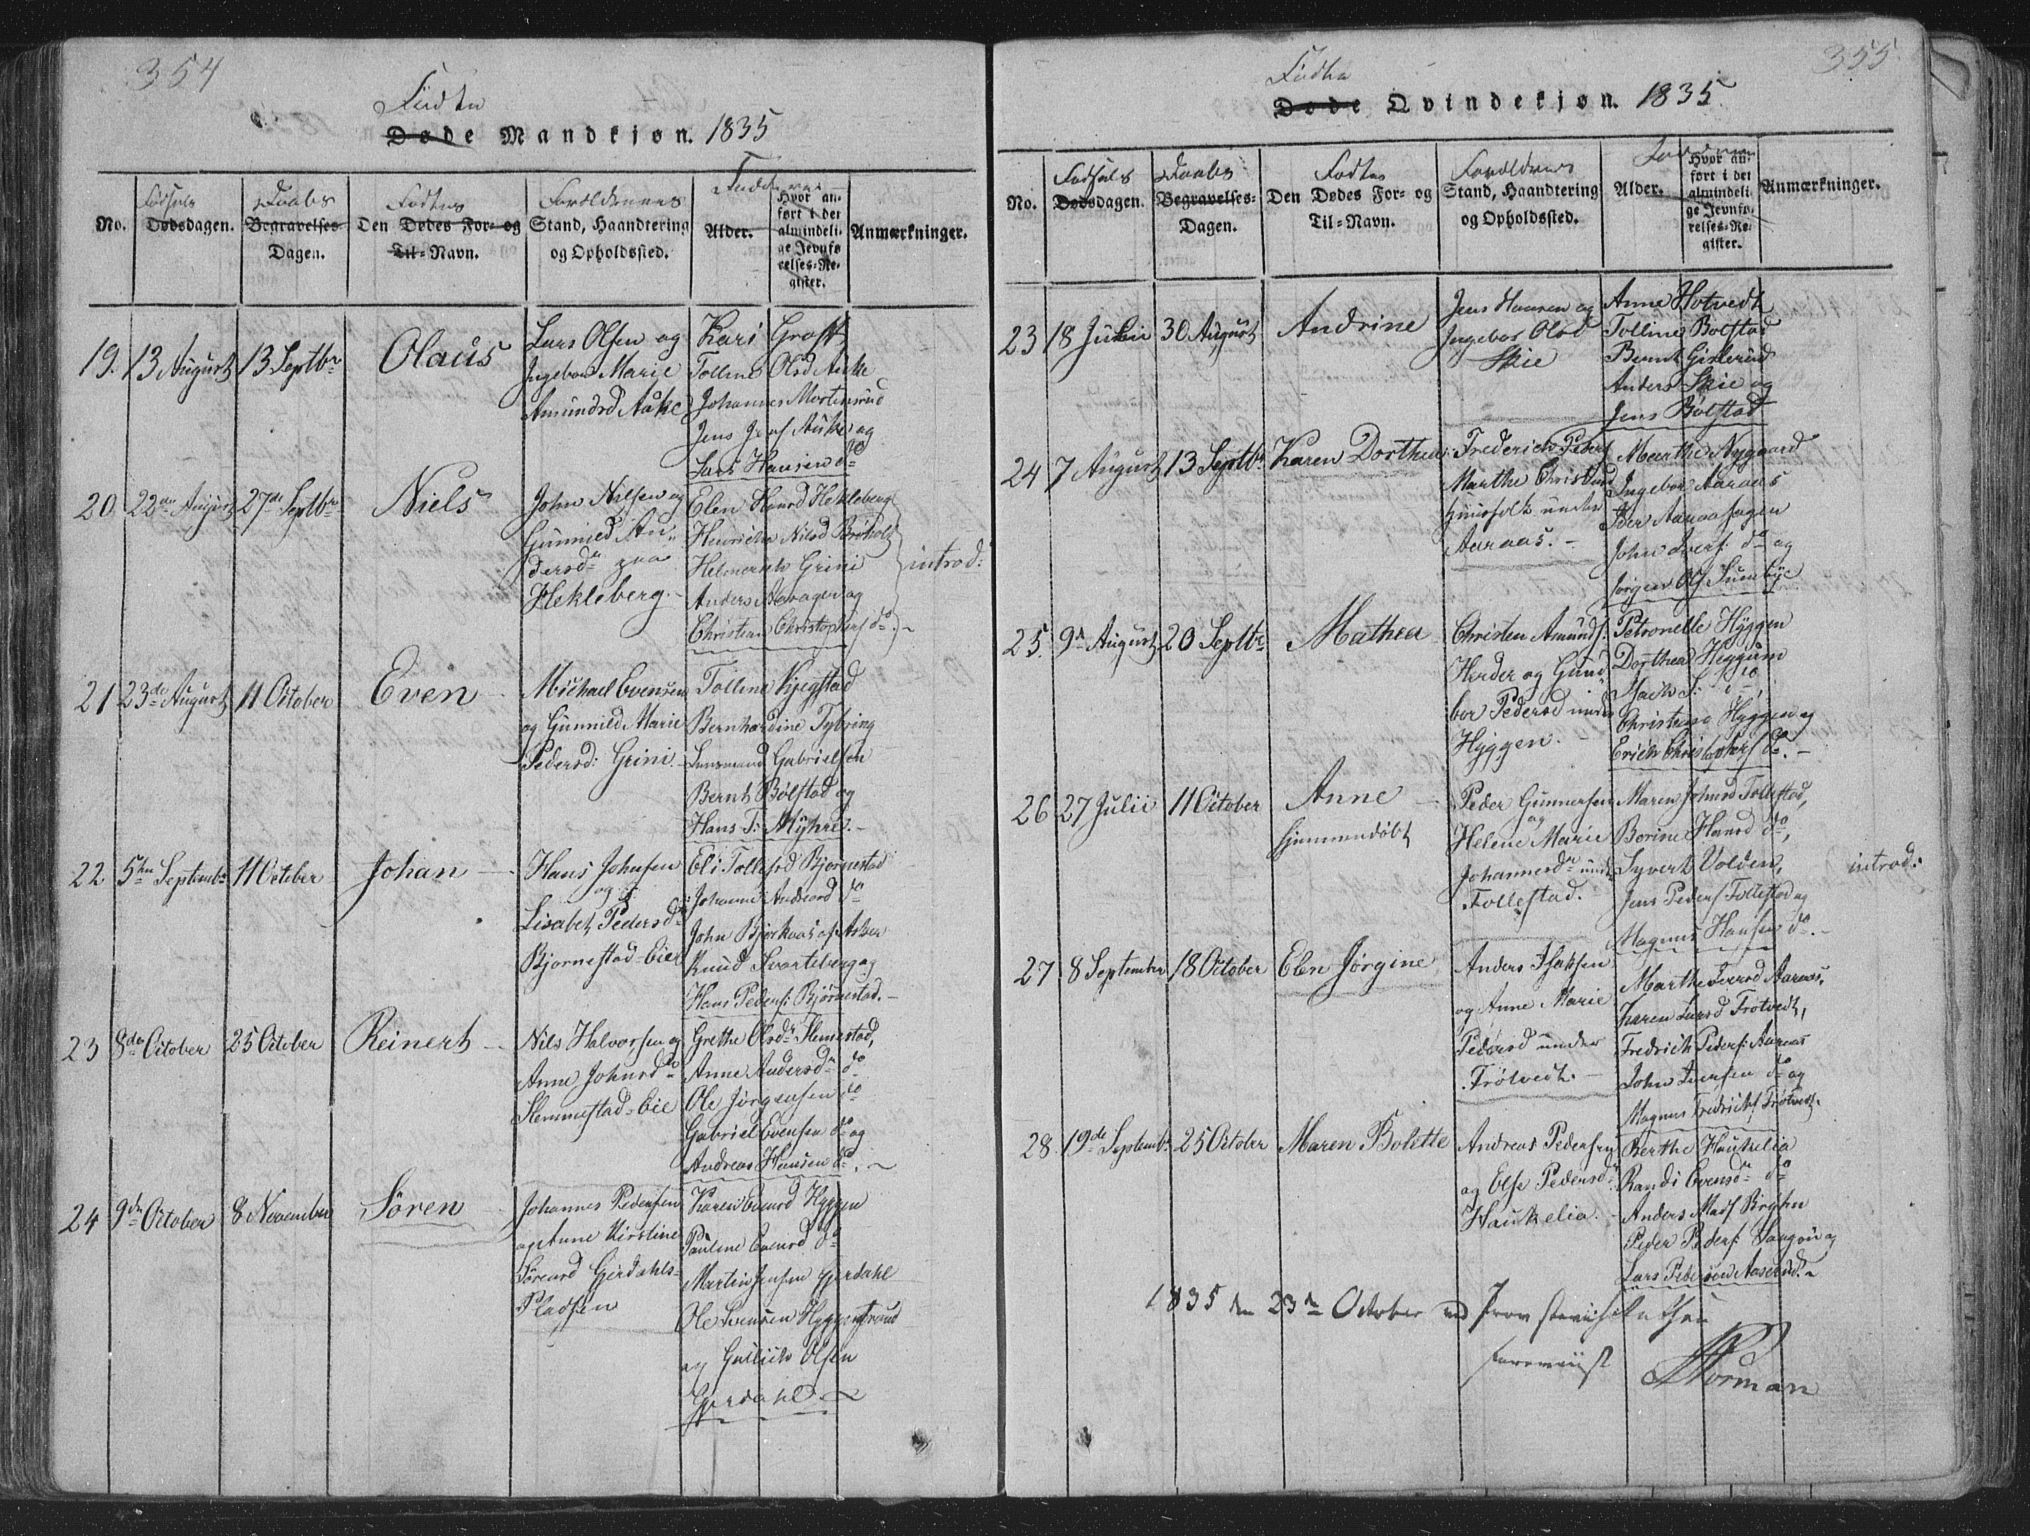 354
Födte
Døde Mandkjøn. 1835
No.
Födsels
Dødsdagen.
Daabs
Begravelses-
Dagen.
Födtes
Den Dødes For- og
Til-Navn.
Foreldrenes
Stand, Haandtering
og Opholdssted.
Faddere
Alder.
Hvor an-
ført i det
almindeli-
ge Jevnfø-
relses-Re-
gister.
Anmærkninger.
19. 13 August 13 Septbr Olaus
Lars Olsen og
Ingebor Marie
Amundsd Aúke
Kari Groff
Tolline Olsd Aúke
Johannes Mortensrud
Jens Aúke og
Lars Hansen do
20. 22de August 27de Septbr Niels
John Nilsen og
Gunnild An-
dersdr paa
Hekleberg.
Elen Hansd Hekleberg
Henricha Nilsd Brøholt
Helmer Grini
Anders Aavagen og
Christian Christophers do
introd:
21 23de August 11 October Even
Michael Evensen
og Gunnild Marie
Pedersd: Grini
Tolline Kjegstad
Bernhardine Tybring
Lensmand Gabrielsen
Bernt Bölstad og
Hans T: Myhre.
22 5te Septembr 11 October Johan
Hans Johnsen
og
Lisabet Pedersdr
Bjornestad-Eie
Eli Tollefsd Bjornestad
Johanne Andersd do
John Bjerkaas af Asker
Knud Svarteberg og
Hans Peders: Bjørnestad.
23 8de October 25 October Reinert
Nils Halvorsen og
Anne Johnsdr
Slemmestad-Eie
Grethe Olsdr Slemestad,
Anne Andersdr do
Ole Jörgensen do
Gabriel Evensen do og
Andreas Hansen do.
24 9de October 8 November Sören
Johannes Pedersen
og Anne Kirstine
Sörensd Gjerdahls-
Pladsen
Karen Evensd Hyggen
Pauline Evensd do
Martin Jensen Gjerdahl
Ole Svensen Hyggenstrand
og Gulich Olsen
Gjerdahl
355
Födte
Døde Qvindekjøn. 1835.
No.
Födsels
Dødsdagen.
Daabs
Begravelses-
Dagen.
Födtes
Den Dødes For- og
Til-Navn.
Foreldrenes
Stand, Haandtering
og Opholdssted.
Faddere
Alder.
Hvor an-
ført i det
almindeli-
ge Jevnfø-
relses-Re-
gister.
Anmærkninger.
23 18 Julii 30 August Andrine
Jens Hansen og
Ingebor Olsd
Skie
Anne Hotvedt
Tolline Bölstad
Bernt Gislerud
Anders Skie og
Jens Bölstad
24 7 August 13 Septbr Karen Dorthea
Frederich Peders
Marthe Christensd
Huusfolk under
Aaraas.
Marthe Nygaard
Ingebor Aaraas
Iver Aaraashagen
John Ivers: do og
Jörgen Ols Suenbye
25. 9de August 20 Septbr Mathea
Christen Amunds:
Herder og Gund-
bor Pedersd under
Hyggen.
Petronelle Hyggen
Dorthea Heggum
Isach I: do
Christens Hyggen og
Erich Christophers do.
26 27 Julii 11 October Anne
hjemmedöbt
Peder Gunnersen
og
Helene Marie
Johannesdr under
Follestad.
Maren Johnsd Follestad,
Borine Hansd do,
Syvert Volden,
Jens Peders Follestad og
Magnus Hansen do.
introd:
27 8 September 18 October Elen Jörgine
Anders Isaksen
og Anne Marie
Pedersd under
Frötvedt.
Marthe Iversd Aaraas,
Karen Larsd Frotvedt,
Fredrich Peders: Aaraas
John Iversen do og
Magnus Fredrichs Frötvedt.
28 19de Septembr 25 October Maren Bolette
Andreas Pedersen
og Else Pedersdr
Haukelia.
Berthe Haukelia
Randi Evensdr do
Anders Mads Bryhn
Peder Peders: Vangöu og
Lars Pedersen Aaserud.
1835 den 23de October ved Provstevisitatsen
foreviist
Norman